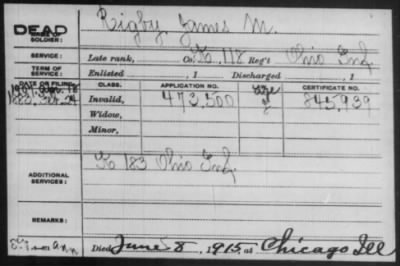 DEAD
Rigby, James M.
NAME OF
SOLDIER:
SERVICE:
Late rank, Co. K, 118 Reg't Ohio Inf.
TERM OF
SERVICE:
Enlisted , 1 Discharged , 1
DATE OF FILING.
CLASS.
APPLICATION NO.
CERTIFICATE NO.
Invalid, 473,500 845,939
Widow,
Minor,
ADDITIONAL
SERVICES:
K 183 Ohio Inf.
REMARKS:
Died June 8, 1915, at Chicago Ill